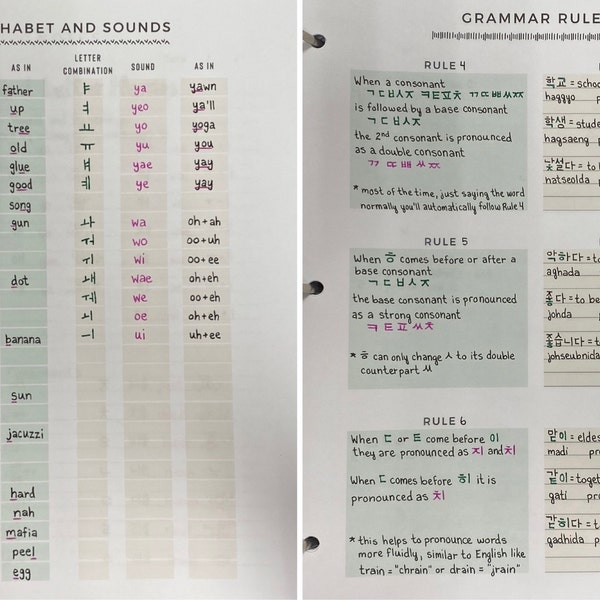 HABET AND SOUNDS
AS IN LETTER COMBINATION SOUND AS IN
father ㅑ ya yawn
up ㅕ yeo ya'll
tree ㅛ yo yoga
old ㅠ yu you
glue ㅒ yae yay
good ㅖ ye yay
song
gun ㅘ wa oh+ah
ㅝ wo oo+uh
ㅟ wi oo+ee
dot ㅙ wae oh+eh
ㅞ we oo+eh
ㅚ oe oh+eh
banana ㅢ ui uh+ee
sun
jacuzzi
hard
nah
mafia
peel
egg
GRAMMAR RULE
RULE 4
When a consonant
ㄱㄷㅂㅅㅈ ㅋㅌㅍㅊ ㄲㄸㅃㅆㅉ
is followed by a base consonant
ㄱㄷㅂㅅㅈ
the 2nd consonant is pronounced
as a double consonant
ㄲ ㄸㅃㅆㅉ
* most of the time, just saying the word
normally you'll automatically follow Rule 4
학교 = schoo
haggyo p
학생 = stude
hagsaeng p
낯설다 = to b
natseolda p
RULE 5
When ㅎ comes before or after a
base consonant
ㄱㄷㅂㅅㅈ
the base consonant is pronounced
as a strong consonant
ㅋㅌㅍㅆㅊ
* ㅎ can only change ㅅ to its double
counterpart ㅆ
악하다 = to
aghada
좋다 = to be
johda p
좋습니다 = t
johseubnida
RULE 6
When ㄷ or ㅌ come before 이
they are pronounced as 지 and 치
When ㄷ comes before 히 it is
pronounced as 치
* this helps to pronounce words
more fluidly, similar to English like
train = "chrain" or drain = "jrain"
맏이 = eldes
madi pro
같이 = toget
gati pro
갇히다 = t
gadhida p